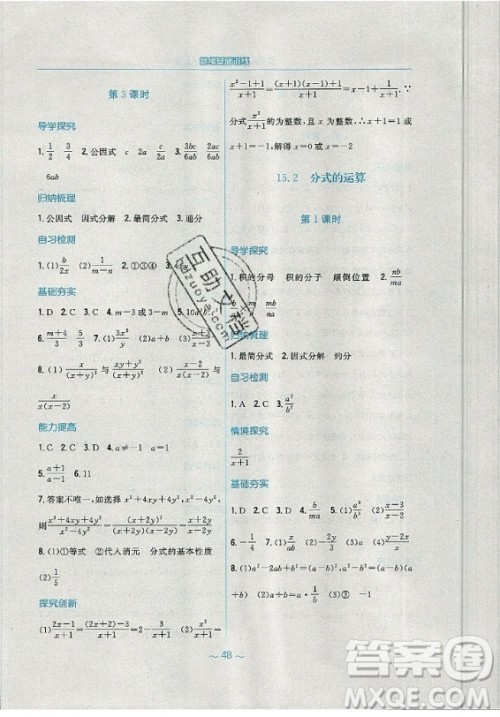 新编基础训练
第3课时
导学探究
1. 1/2 3/4 2. 公因式 c 2a c/2a 3. 3c/6ab 2a/6ab
6ab
归纳梳理
1. 公因式 因式分解 2. 最简分式 3. 通分
自习检测
1. (1) b/2x (2) 1/(m-a) 2. ①③④
基础夯实
1. D 2. C 3. C 4. m-3或3-m 5.
6. (1) (m+4)/(m-3) (2) 3/5 7. (1)
8. (1) x/(x+y)² 与 (xy+y²)/(x+y)² (2) (x-2)/x(x-2) 与
x/x(x-2)
能力提高
1. D 2. C 3. C 4. a≠-1 a=1
5. (a+1)/(a-1) 6. 11
7. 答案不唯一,如选择x²+4xy+4y²,x²-4y²,
则 (x²+4xy+4y²)/(x²-4y²) = (x+2y)²/(x+2y)(x-2y) = (x+2y)/(x-2y)
8. (1)①等式 ②代人消元 分式的基本性质
(2)
探究创新
(1) (2x-1)/(x+1) = ((2x+2)-3)/(x+1) = 2-3/(x+1) (2) x²/(x+1) =
(x²-1+1)/(x+1) = ((x+1)(x-1)+1)/(x+1) = x-1+1/(x+1) ∵
分式 x²/(x+1) 的为整数,且x为整数 ∴x+1=±1
解得:x=0或x=-2
15.2 分式的运算
第1课时
导学探究
1. 积的分母 积的分子 颠倒位置 2. nb/ma
nb/ma
归纳梳理
1. 最简分式 2. 因式分解 约分
自习检测
1. A 2. C 3. a²/b²
情境探究
2/(x+1)
基础夯实
1. D 2. C 3. D 4. D 5. b/ma 6. (1) (x-3)/(x-2)
(2)
8. (1)a²-2ab+b²=(a-b)²,a²-b²=(a+b)(a-
b) (2)a÷b (3)③ -1
~ 48 ~
互助文档
huzuoya.com
答案卷
MXQE.COM